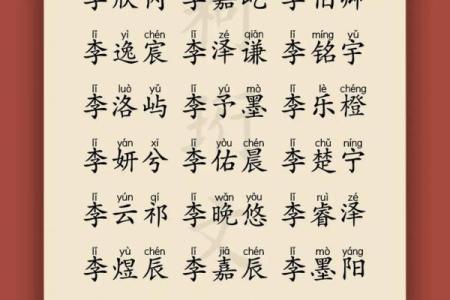 李嘉屹
lǐ yì chén lǐ zé qiān lǐ míng yǔ
李逸宸 李泽谦 李铭宇
lǐ luò yǔ lǐ yú mò lǐ lè chéng
李洛屿 李予墨 李乐橙
lǐ yán xī lǐ yòu chén lǐ chǔ níng
李妍兮 李佑晨 李楚宁
lǐ yún qí lǐ wǎn yōu lǐ ruì zé
李云祁 李晚悠 李睿泽
lǐ yù chén lǐ jiā chén lǐ mò yáng
李煜辰 李嘉辰 李墨阳